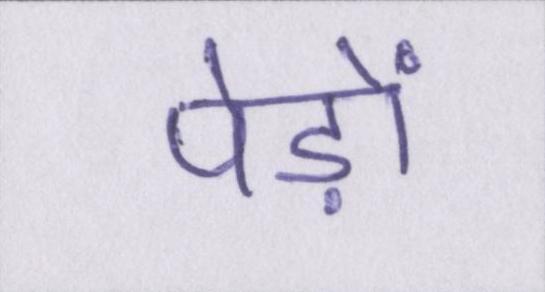 पेड़ों